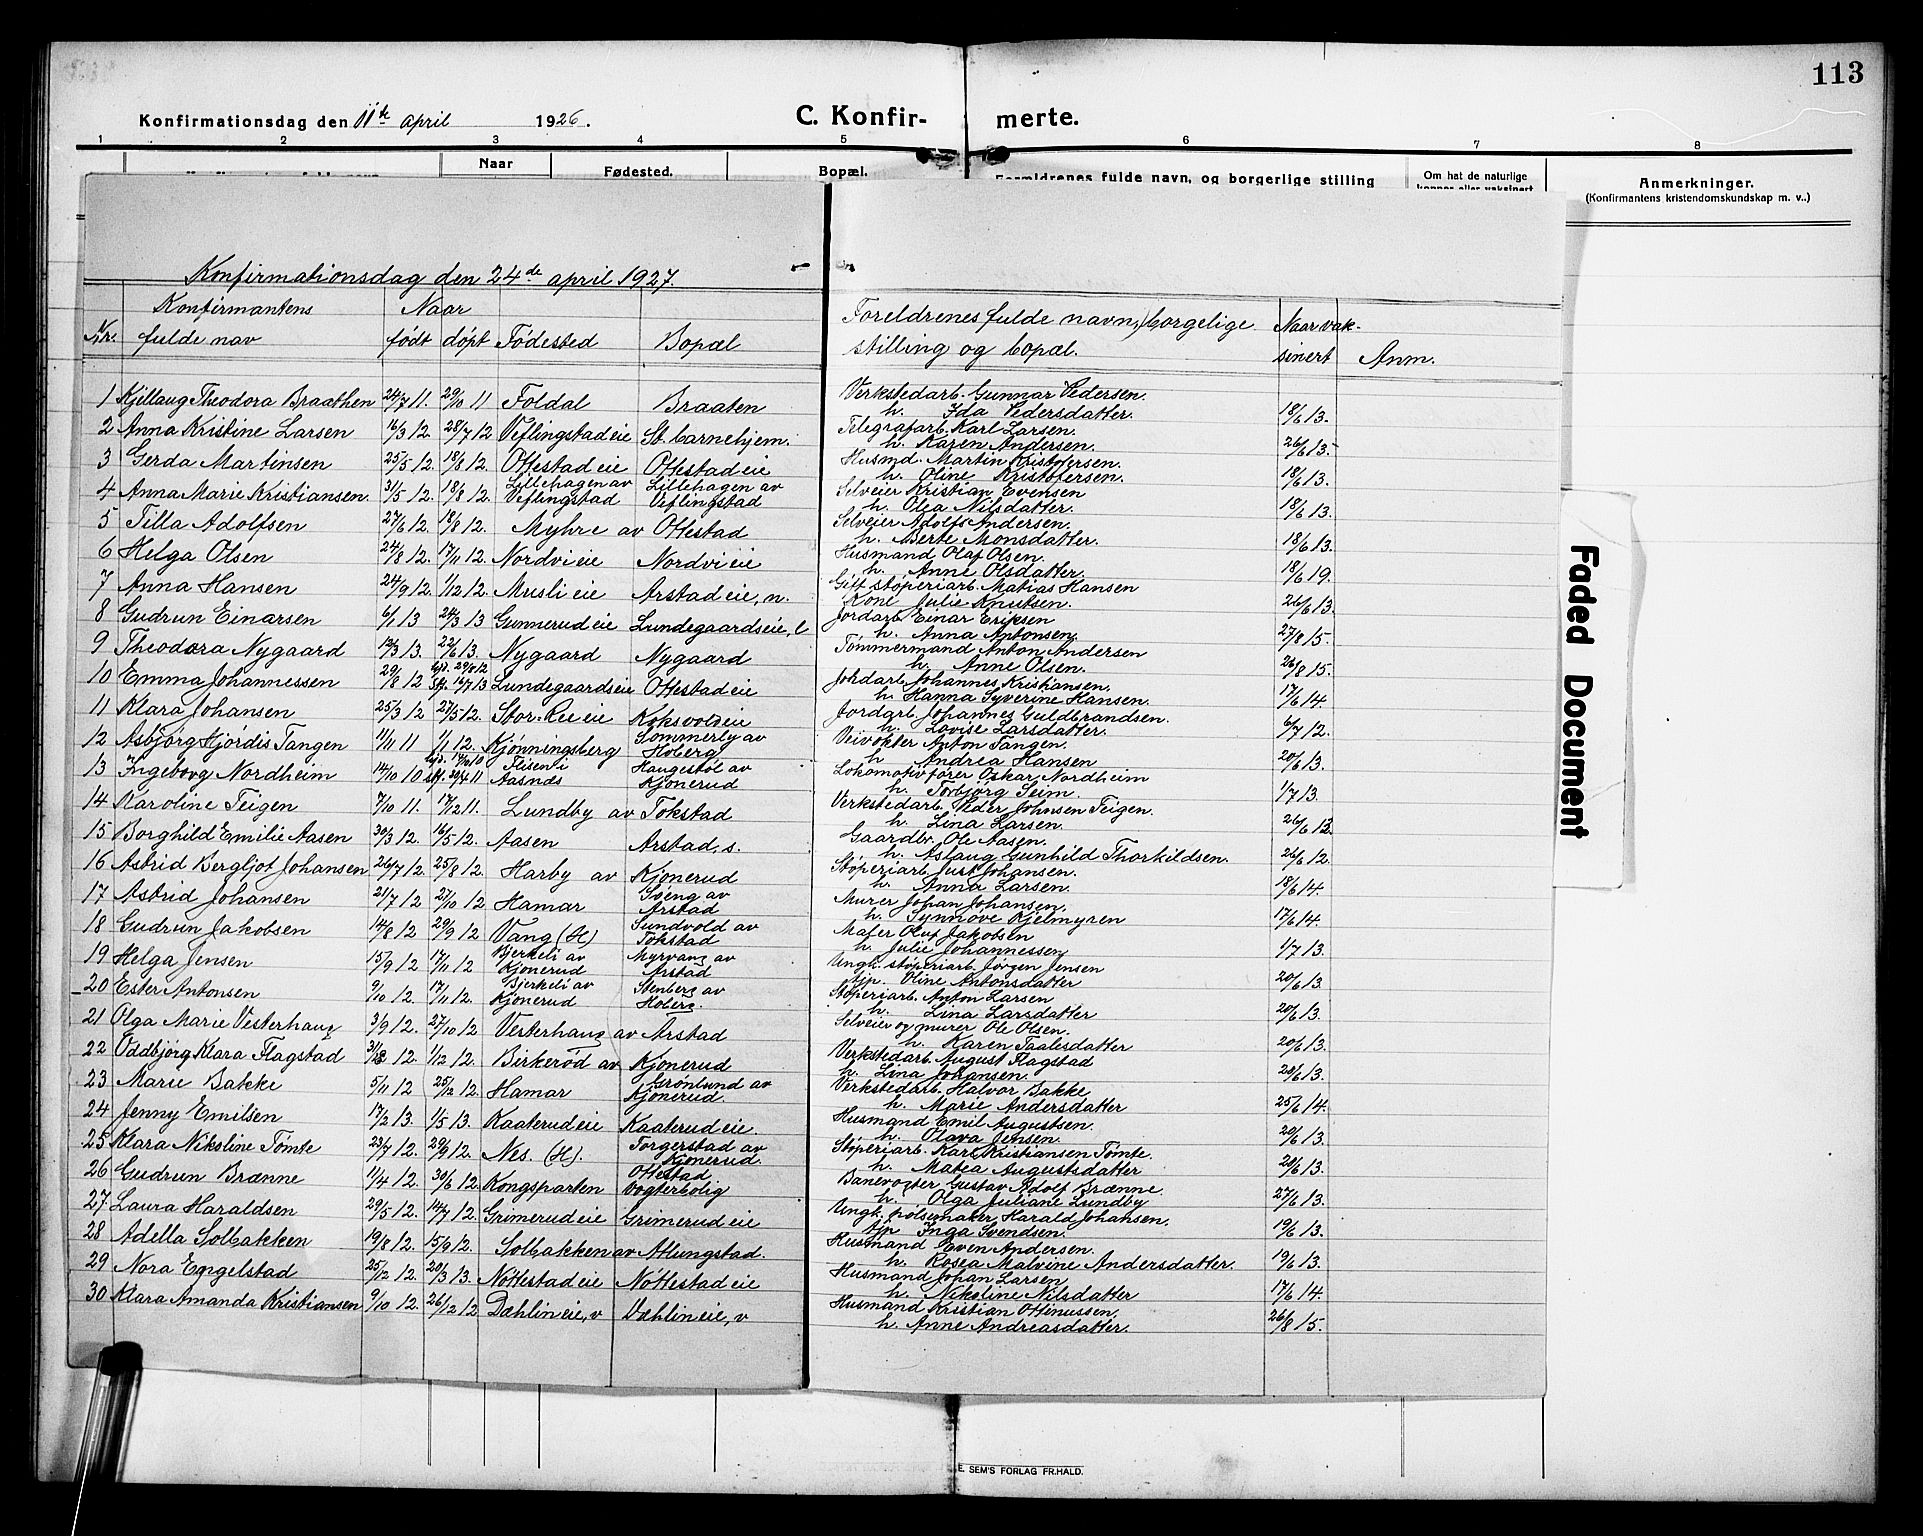 113
Konfirmationsdag den 11te april 1926.
C. Konfir- merte.
1 2 3 4 5 6 7 8
Naar
Fødested.
Bopæl.
Forældrenes fulde navn, og borgerlige stilling
Om hat de naturlige
Anmerkninger.
(Konfirmantens kristendomskundskap m. v..)
Konfirmationsdag den 24de april 1927.
Konfirmantens Naar
Nr. fulde nav født døpt Fødested Bopæl
Foreldrenes fulde navn, borgelige Naar vak-
stilling og bopæl. sinert Anm.
1 Kjellaug Theodora Braathen 24/7 11. 29/10 11 Foldal Braaten Verkstedarb. Gunnar Pedersen.
h. Ida Pedersdatter. 18/6 13.
2 Anna Kristine Larsen 16/3 12. 28/7 12 Veflingstadeie St. barnehjem. Telegrafarb. Karl Larsen.
h. Karen Andersen. 26/6 13.
3 Gerda Martinsen 25/5 12. 18/8 12. Ottestadeie Ottestadeie Husmd. Martin Kristofersen.
h. Oline Kristofersen. 18/6 13.
4 Anna Marie Kristiansen 31/5 12. 18/8 12. Lillehagen av Veflingstad Lillehagen av Veflingstad Selveier Kristian Evensen
h. Olea Nilsdatter. 18/6 13.
5 Tilla Adolfsen 27/6 12. 18/8 12. Myhre av Ottestad Selveier Adolf Andersen.
h. Berte Monsdatter. 18/6 13.
6 Helga Olsen 24/8 12. 17/11 12. Nordvieie Nordvieie Husmand Olaf Olsen.
h. Anne Olsdatter. 18/6 19.
7 Anna Hansen 24/9 12. 1/12 12. Muslieie Arstadeie, n. Gift støperiarb. Matias Hansen
Kone Julie Knutsen. 26/6 13.
8 Gudrun Einarsen 6/1 13 24/3 13 Gunnerudeie Lundegaardseie, l Jordarb. Einar Eriksen
h. Anna Antonsen. 27/8 15.
9 Theodora Nygaard 12/3 13. 22/6 13. Nygaard Nygaard Tømmermand Anton Andersen
h. Anne Olsen. 26/8 15.
10 Emma Johannessen 29/8 12 hjd. 29/8 12 stf. 16/7 13 Lundegaardseie Ottestadeie Johdarb. Johannes Kristiansen.
h. Hanna Syverine Hansen. 17/6 14.
11 Klara Johansen 25/3 12 27/5 12. Stor-Reeeie Koksvoldeie Jordarb. Johannes Guldbrandsen.
h. Lovise Larsdatter. 6/7 12.
12 Asbjørg Hjørdis Tangen 11/11 11 1/1 12. Kjønningsberg Sommerby av Hoberg Veivokter Anton Tangen.
h. Andrea Hansen 20/6 13.
13 Ingeborg Nordheim 14/10 10 hjd. 17/10 10 stf. 30/4 11 Flisen i Aasnes Haugestøl av Kjonerud Lokomotivfører Oskar Nordheim
h. Torbjørg Seim. 1/7 13.
14 Karoline Teigen 7/10 11. 17/12 11. Lundby av Tokstad Verkstedarb. Peder Johnsen Teigen.
h. Lina Larsen. 26/6 12.
15 Borghild Emilie Aasen 30/3 12. 16/5 12. Aasen Arstad, s. Gaardbr. Ole Aasen.
h. Aslaug Gunhild Thorkildsen. 26/6 12.
16 Astrid Bergljot Johansen 26/7 12. 25/8 12. Harby av Kjonerud Støperiarb. Just Johansen.
h. Anna Larsen. 18/6 14.
17 Astrid Johansen 21/7 12 27/10 12 Hamar Sveng av Arstad Murer Johan Johansen.
h. Synnøve Kjelmyren 17/6 14.
18 Gudrun Jakobsen 14/8 12 29/9 12 Vang (H) Sundvold av Tokstad Maler Oluf Jakobsen
h. Julie Johannessen 1/7 13.
19 Helga Jensen 15/9 12 17/11 12 Bjerkeli av Kjonerud Myrvang av Arstad Ungk. støperiarb. Jørgen Jensen
Pip. Oline Antonsdatter 20/6 13.
20 Ester Antonsen 9/10 12. 17/11 12. Bjerkeli av Kjonerud Stenberg av Hoberg. Støperiarb. Anton Larsen
h. Lina Larsdatter 20/6 13.
21 Olga Marie Vesterhaug 3/9 12. 27/10 12 Vesterhaug av Arstad Selveier og murer Ole Olsen.
h. Karen Taalesdatter 20/6 13.
22 Oddbjørg Klara Flagstad 12. 1/12 12. Birkerød av Kjonerud Verkstedarb. August Flagstad
h. Lina Johansen. 20/6 13.
23 Marie Bakke 5/11 12 25/12 12. Hamar Grønlund av Kjonerud. Verkstedarb. Halvor Bakke
h. Marie Andersdatter 25/6 14.
24 Jenny Emilsen 17/2 13. 1/5 13. Kaaterudeie Kaaterudeie. Husmand Emil Augustsen.
h. Olava Jensen. 20/6 13.
25 Klara Nikoline Tømte 23/7 12. 29/9 12. Nes. (H). Torgerstad av Kjonerud. Støperiarb. Karl Kristiansen Tømte.
h. Matea Augustsdatter 20/6 13.
26 Gudrun Brænne 11/4 12. 30/6 12. Kongsparten Ottestad vogterbolig Banevogter Gustav Adolf Brænne.
h. Olga Juliane Lundby 27/6 13.
27 Laura Haraldsen 29/5 12. 14/7 12. Grimerudeie Grimerudeie Ungk. pølsemaker Harald Johansen.
Pip Inga Svendsen. 19/6 13.
28 Adella Solbakken 19/8 12. 15/9 12. Solbakken av Atlungstad. Husmand Even Andersen.
h. Rosea Malvine Andersdatter. 19/6 13.
29 Nora Engelstad 25/12 12. 20/3 13. Nøttestadeie Nøttestadeie Husmand Johan Larsen
h. Nikoline Nilsdatter 17/6 14.
30 Klara Amanda Kristiansen 9/10 12. 26/12 12 Dæhlineie, v Dæhlineie, v Husmand Kristian Ottinussen.
h. Anne Andreasdatter. 26/8 15.
Faded Document
E. SEM'S FORLAG FR.HALD.